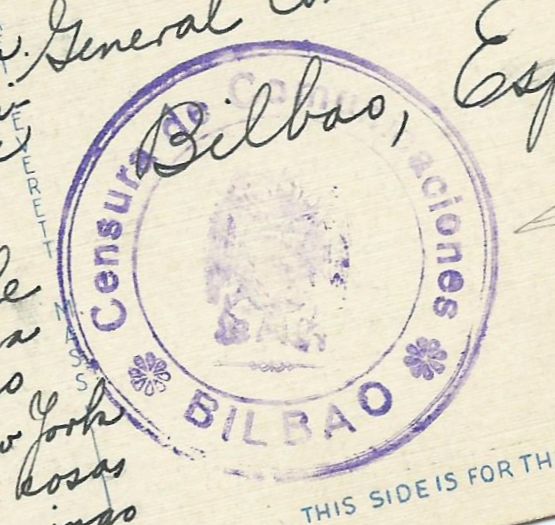 General
Bilbao,
Censura de Comunicaciones
BILBAO
EVERETT
MASS
York
cosas
THIS SIDE IS FOR TH